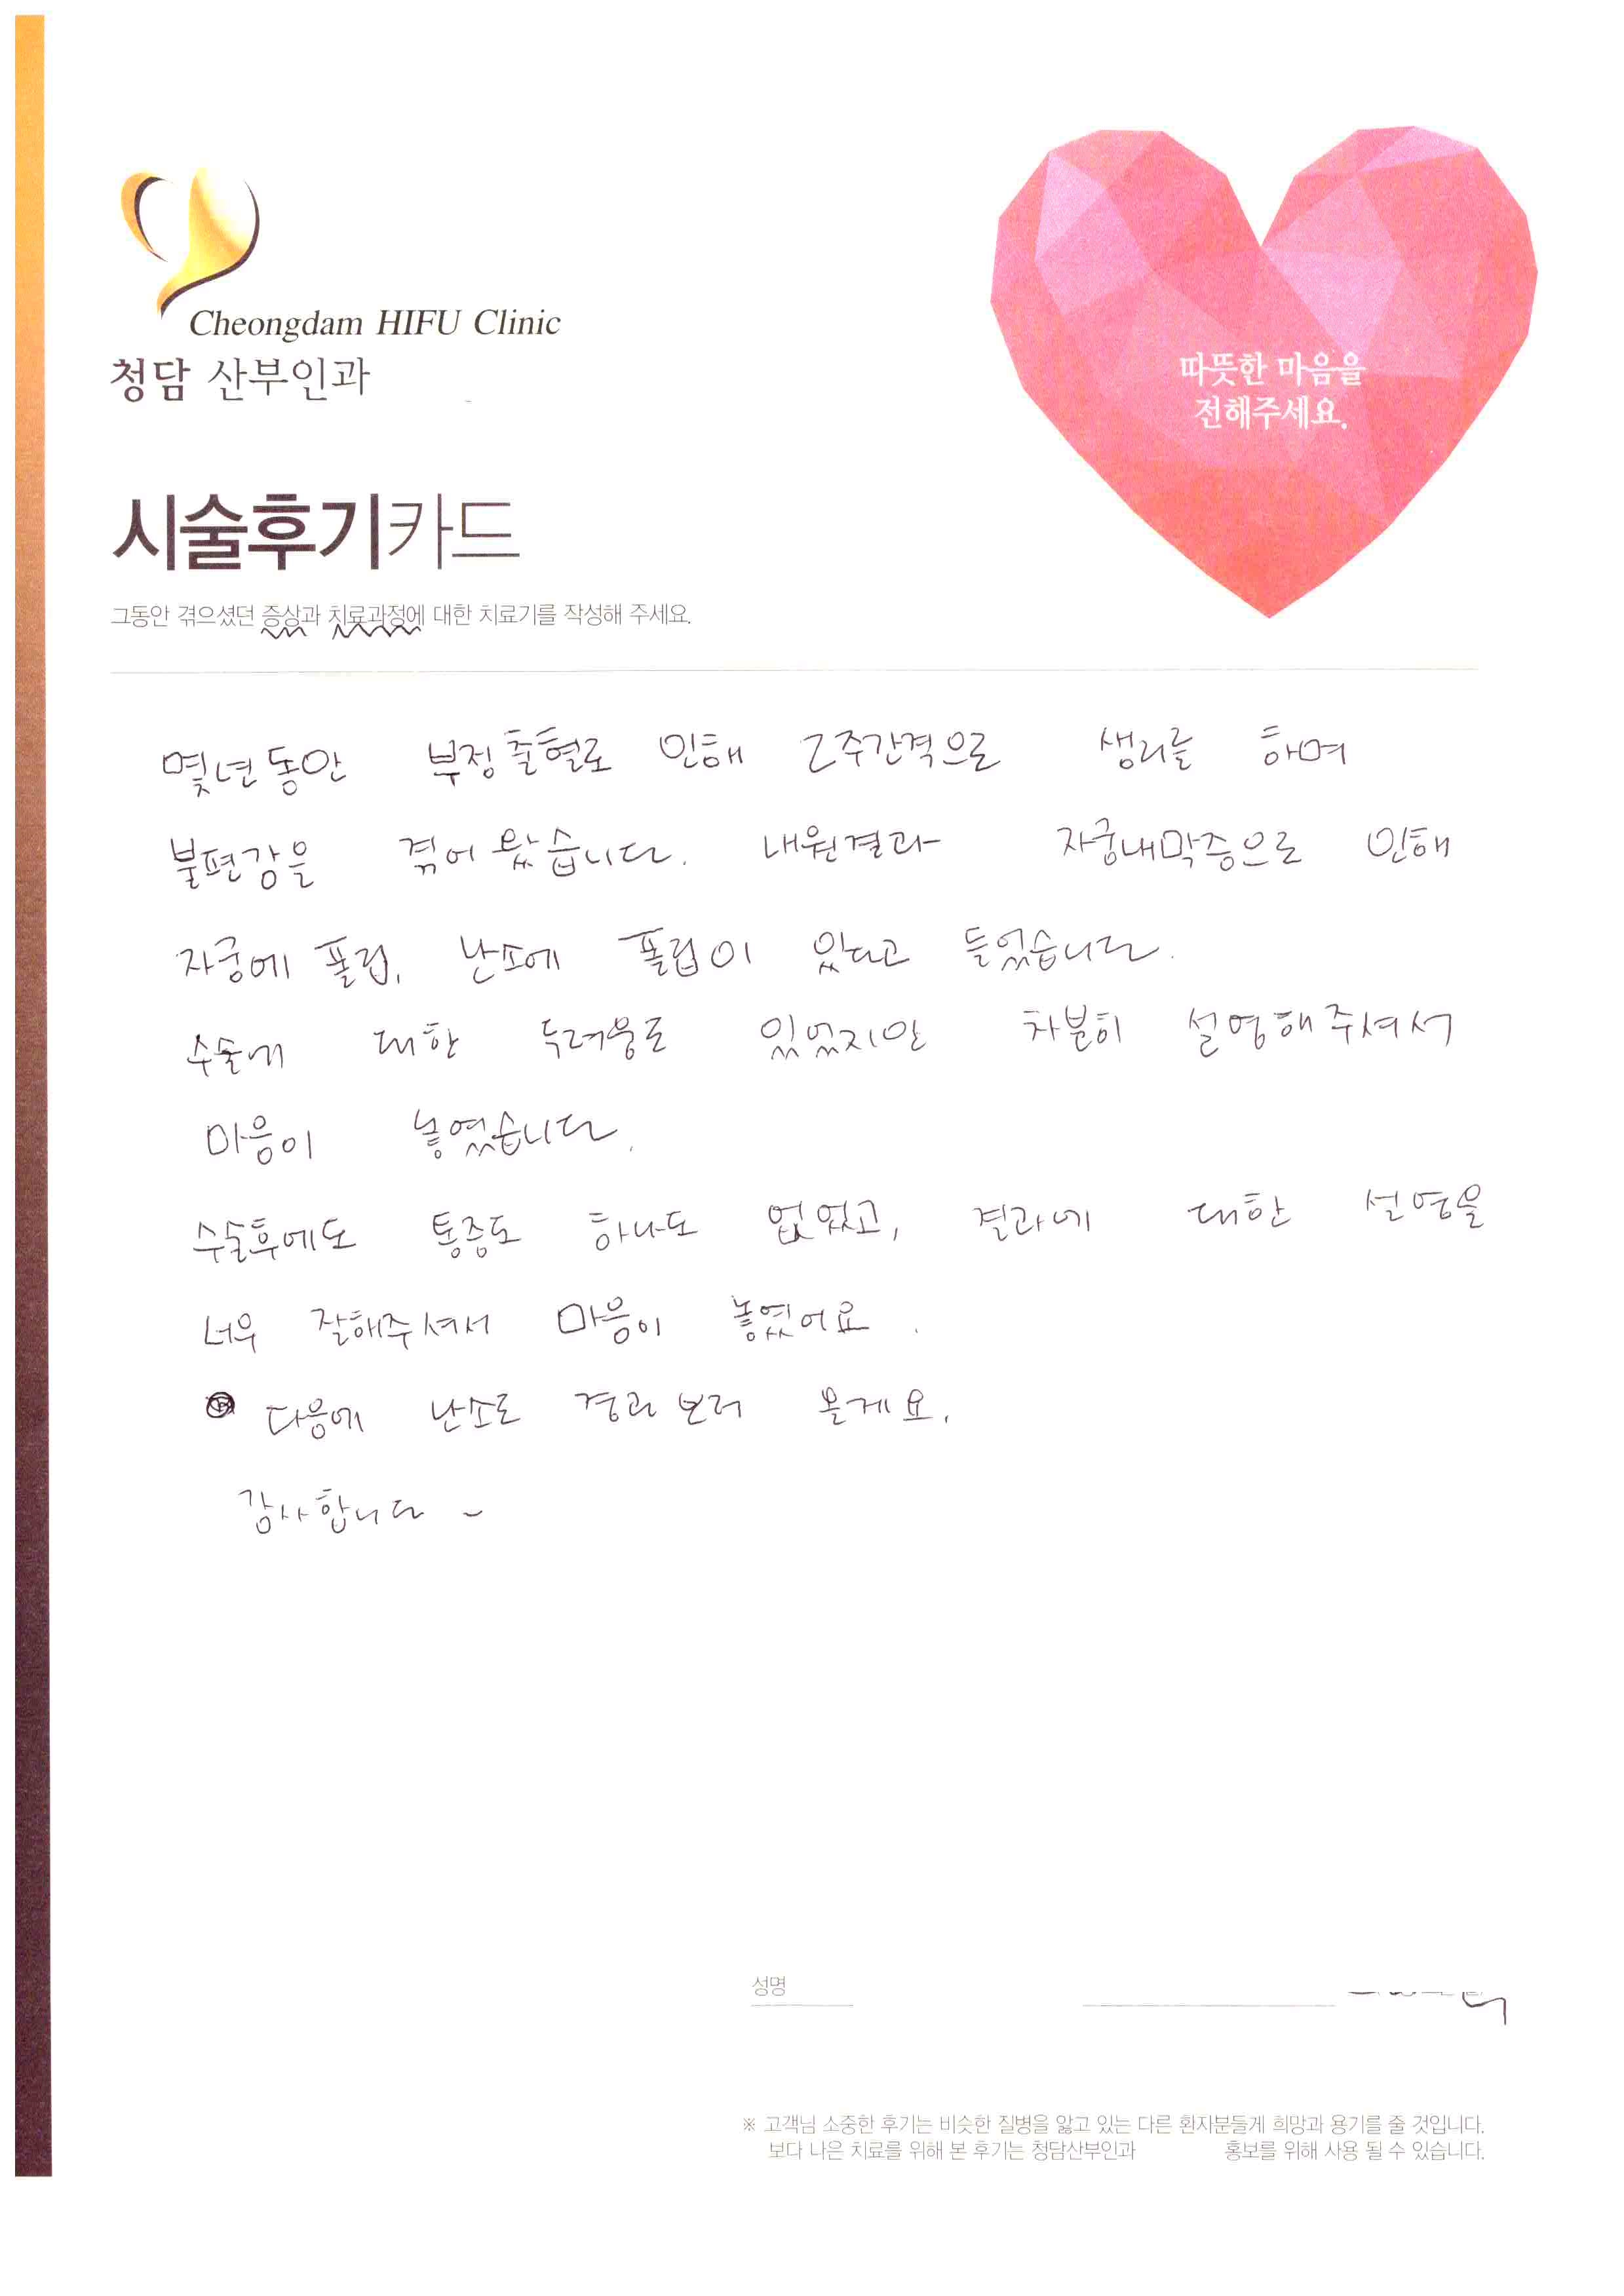 Cheongdam HIFU Clinic
청담 산부인과
따뜻한 마음을
전해주세요.
시술후기카드
그동안 겪으셨던 증상과 치료과정에 대한 치료기를 작성해 주세요.
몇년동안 부정출혈로 인해 2주간격으로 생리를 하며
불편감을 겪어왔습니다. 내원결과 자궁내막증으로 인해
자궁에 폴립, 난소에 폴립이 있다고 들었습니다.
수술에 대한 두려움도 있었지만 차분히 설명해주셔서
마음이 놓였습니다.
수술후에도 통증도 하나도 없었고, 결과에 대한 설명을
너무 잘해주셔서 마음이 놓였어요.
다음에 난소도 경과보러 올게요.
감사합니다~
성명
※ 고객님 소중한 후기는 비슷한 질병을 앓고 있는 다른 환자분들게 희망과 용기를 줄 것입니다.
보다 나은 치료를 위해 본 후기는 청담산부인과 홍보를 위해 사용 될 수 있습니다.